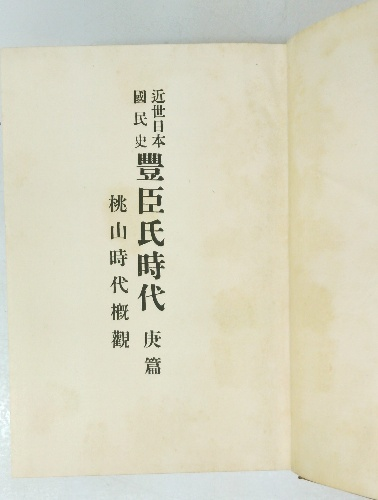 近世日本
國民史
豐臣氏時代 庚篇
桃山時代概觀